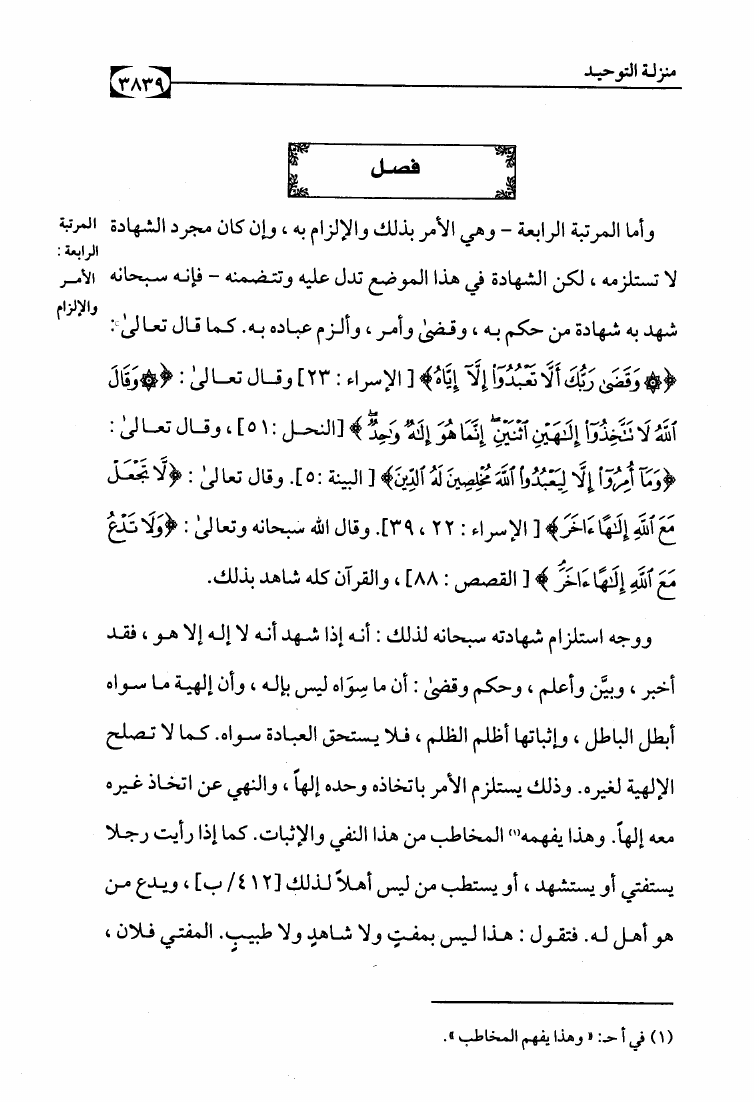 منزلة التوحيد
٣٨٣٩
فصل
وأما المرتبة الرابعة – وهي الأمر بذلك والإلزام به ، وإن كان مجرد الشهادة
المرتبة
الرابعة :
الأمر
والإلزام
لا تستلزمه ، لكن الشهادة في هذا الموضع تدل عليه وتتضمنه – فإنه سبحانه
شهد به شهادة من حكم به ، وقضىٰ وأمر ، وألزم عباده به. كما قال تعالىٰ :
﴿۞ وَقَضَىٰ رَبُّكَ أَلَّا تَعْبُدُوٓا۟ إِلَّآ إِيَّاهُ﴾ [ الإسراء : ٢٣] وقال تعالىٰ : ﴿۞وَقَالَ
ٱللَّهُ لَا تَتَّخِذُوٓا۟ إِلَـٰهَيْنِ ٱثْنَيْنِ ۖ إِنَّمَا هُوَ إِلَـٰهٌ وَٰحِدٌ ۖ ﴾ [النحل :٥١] ، وقال تعالىٰ :
﴿وَمَآ أُمِرُوٓا۟ إِلَّا لِيَعْبُدُوا۟ ٱللَّهَ مُخْلِصِينَ لَهُ ٱلدِّينَ﴾ [ البينة :٥]. وقال تعالىٰ : ﴿لَّا تَجْعَلْ
مَعَ ٱللَّهِ إِلَـٰهًا ءَاخَرَ﴾ [ الإسراء : ٢٢ ، ٣٩]. وقال الله سبحانه وتعالىٰ : ﴿وَلَا تَدْعُ
مَعَ ٱللَّهِ إِلَـٰهًا ءَاخَرَ ۘ ﴾ [ القصص : ٨٨] ، والقرآن كله شاهد بذلك.
ووجه استلزام شهادته سبحانه لذلك : أنه إذا شهد أنه لا إله إلا هو ، فقد
أخبر ، وبيَّن وأعلم ، وحكم وقضىٰ : أن ما سِوَاه ليس بإله ، وأن إلهية ما سواه
أبطل الباطل ، وإثباتها أظلم الظلم ، فلا يستحق العبادة سواه. كما لا تصلح
الإلهية لغيره. وذلك يستلزم الأمر باتخاذه وحده إلهاً ، والنهي عن اتخاذ غيره
معه إلهاً. وهذا يفهمه(١) المخاطب من هذا النفي والإثبات. كما إذا رأيت رجلا
يستفتي أو يستشهد ، أو يستطب من ليس أهلاً لذلك [٤١٢/ ب] ، ويدع من
هو أهل له. فتقول : هذا ليس بمفتٍ ولا شاهدٍ ولا طبيبٍ. المفتي فلان ،
(١) في أ حـ: « وهذا يفهم المخاطب ».